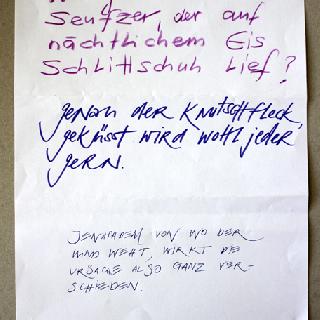 Seufzer, der auf
nächtlichem Eis
Schlittschuh lief?
genau der Knutschfleck,
geküsst wird wohl jeder
gern.
JENACHDEM VON WO DER
WIND WEHT, WIRKT DIE
URSACHE ALSO GANZ VER-
SCHIEDEN.